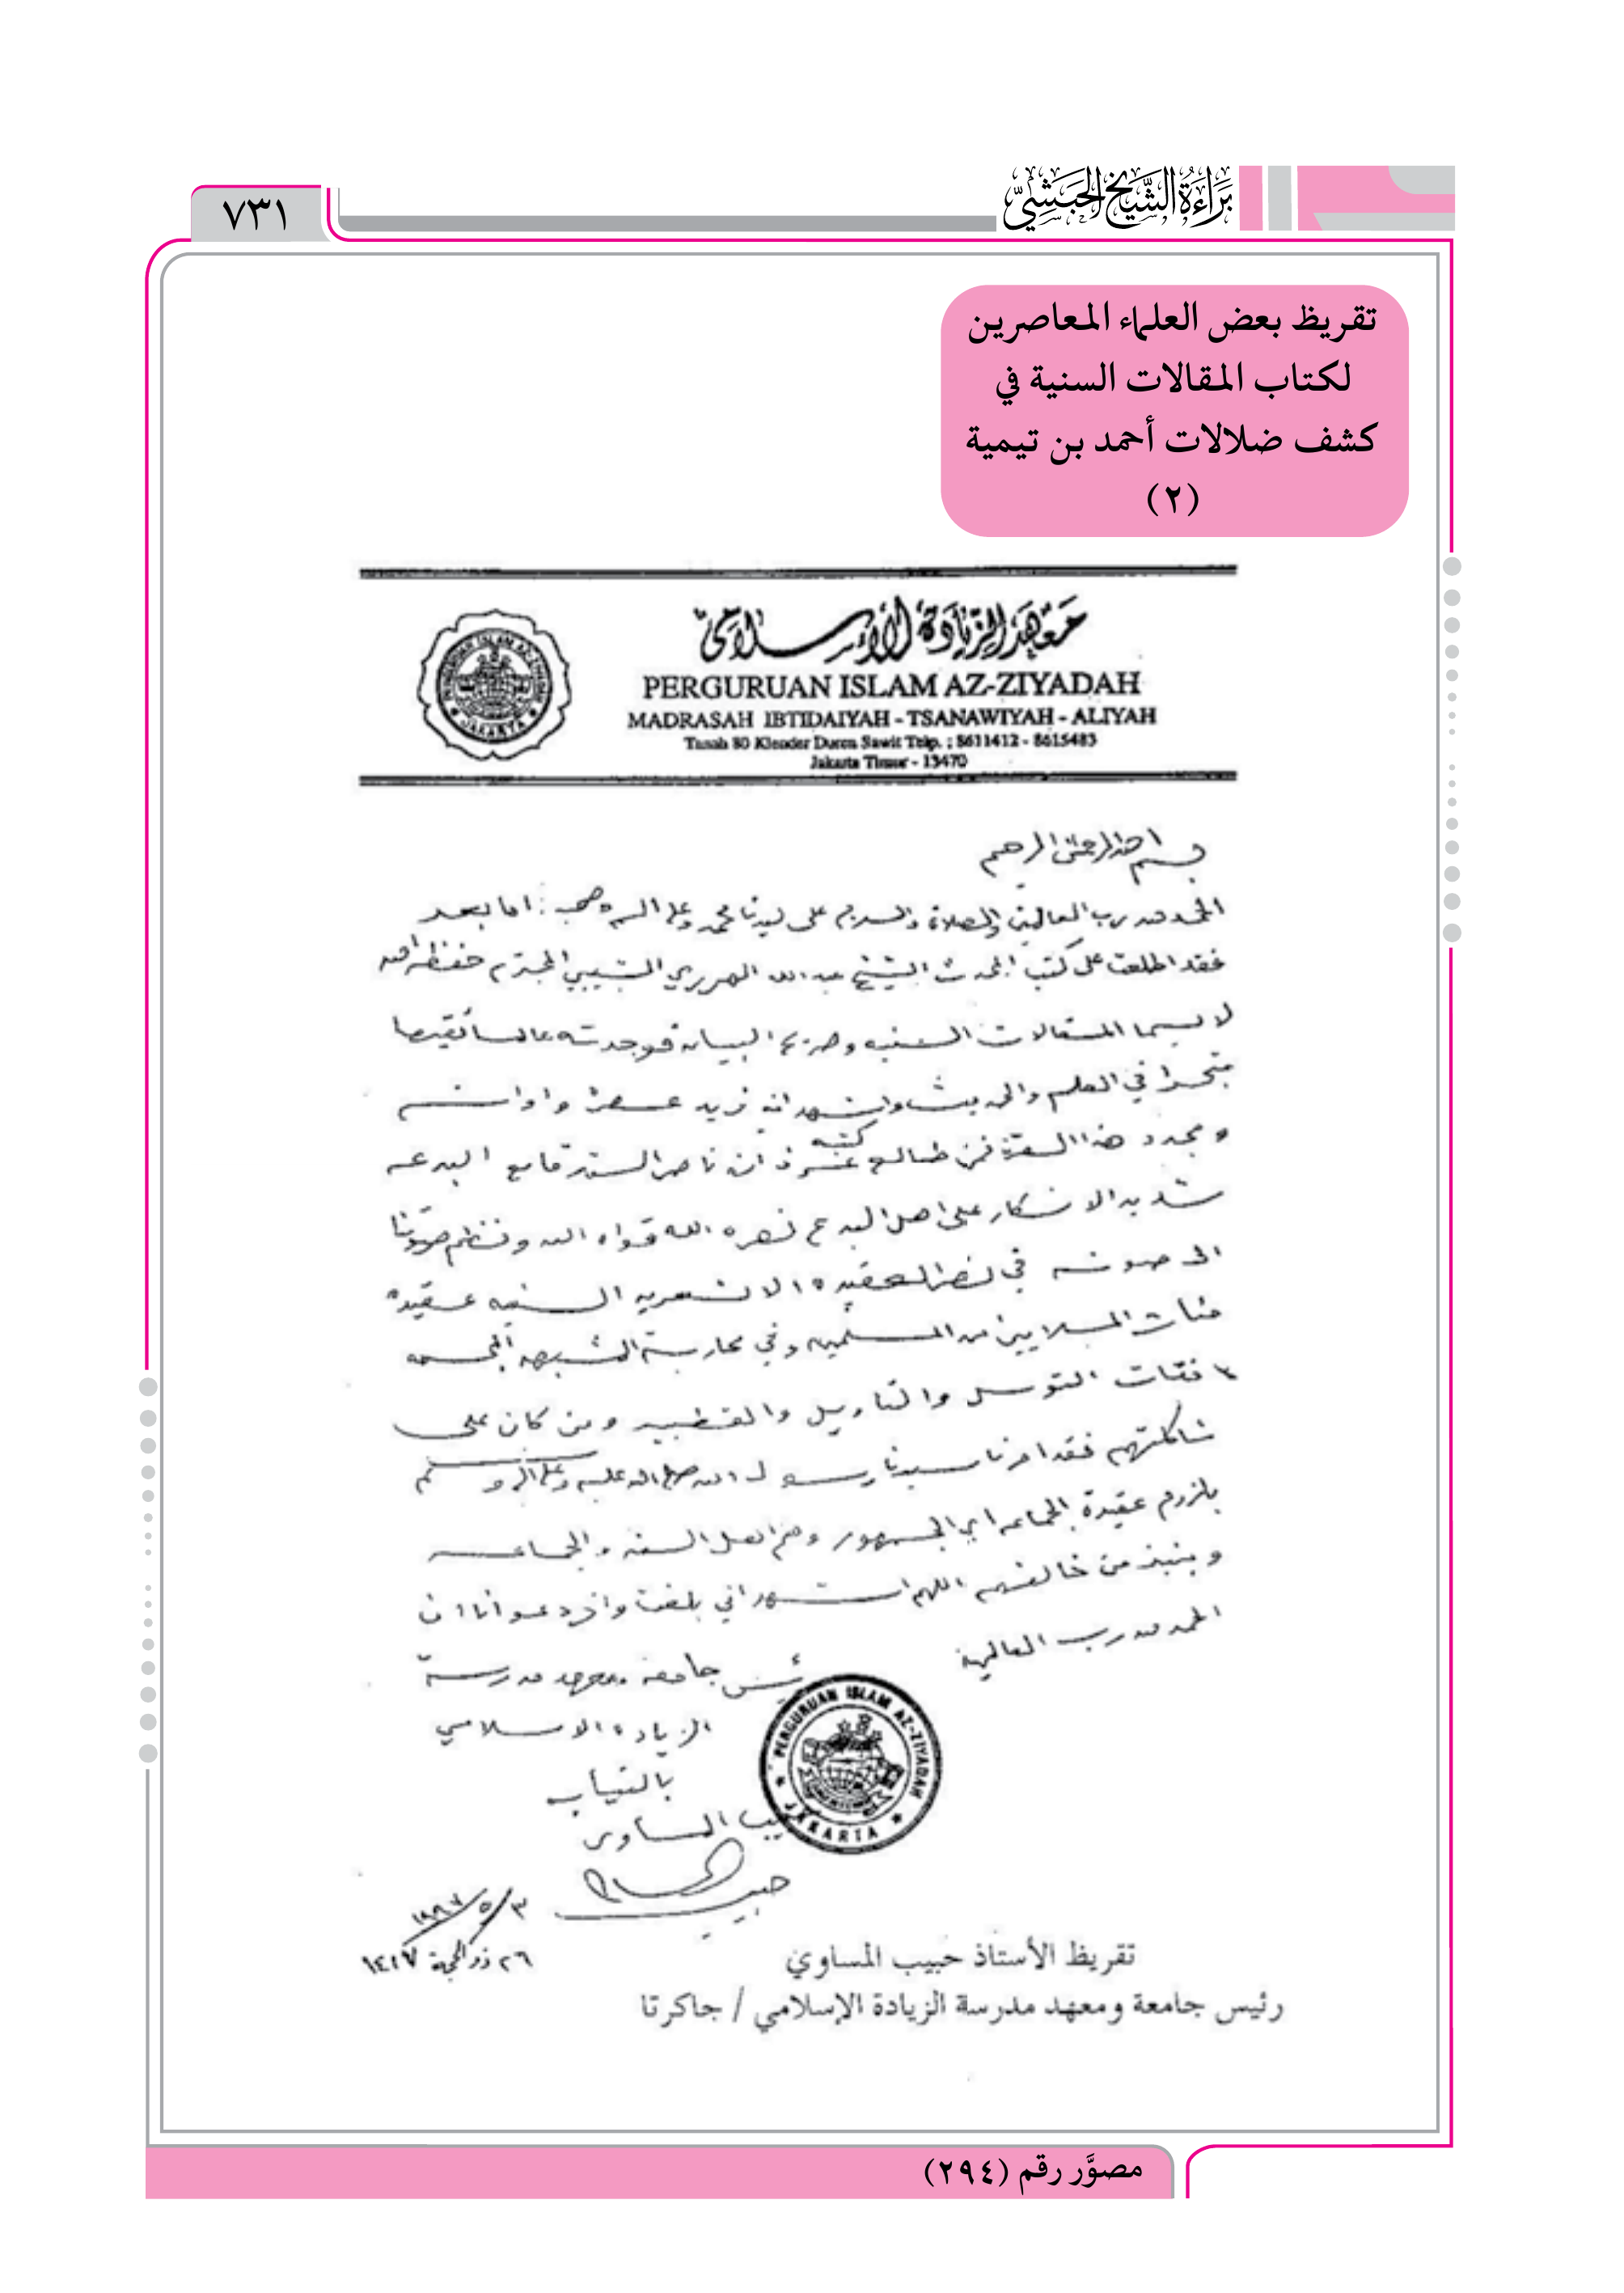 براءة الشيخ الحبشي
٧٣١
تقريظ بعض العلماء المعاصرين
لكتاب المقالات السنية في
كشف ضلالات أحمد بن تيمية
(٢)
معهد الزيادة الإسلامي
PERGURUAN ISLAM AZ-ZIYADAH
MADRASAH IBTIDAIYAH - TSANAWIYAH - ALIYAH
Tanah 80 Klender Duren Sawit Telp. : 8611412 - 8615483
Jakarta Timur - 13470
PERGURUAN ISLAM AZ-ZIYADAH
JAKARTA
بسم الله الرحمن الرحيم
الحمد لله رب العالمين والصلاة والسلام على سيدنا محمد وعلى اله وصحبه : اما بعد
فقد اطلعت على كتب المحدث الشيخ عبد الله الهرري الشيبي المحترم حفظه الله
لا سيما المقالات السنيه وصريح البيان فوجدته عالما تقيا
متبحرا في العلم والحديث واشهد انه فريد عصره واوانه
ومجدد هذا فمن طالع كتبه عرف ان ناصر السنه قامع البدعه
شديد الانكار على اهل البدع نصره الله قواه الله ونضم صوتنا
الى صوته في نصر العقيده الاشعريه السنيه عقيدة
مئات الملايين من المسلمين وفي محاربة المشبهه المجسمه
التوسل والتاويل والقطبيه ومن كان على
شاكلتهم فقد امرنا سيدنا رسول الله صلى الله عليه وعلى اله وسلم
بلزوم عقيدة الجماعه اي الجمهور وهم اهل السنه والجماعه
وينبذ من خالفهم اللهم اشهد اني بلغت واخر دعوانا ان
الحمد لله رب العالمين
رئيس جامعة ومعهد مدرسة
الزيادة الاسلامي
بالنيابه
حبيب المساوى
PERGURUAN ISLAM AZ-ZIYADAH
JAKARTA
٣/٥/١٩٩٧
٢٦ ذو الحجة ١٤١٧
تقريظ الأستاذ حبيب المساوي
رئيس جامعة ومعهد مدرسة الزيادة الإسلامي / جاكرتا
مصوَّر رقم (٢٩٤)